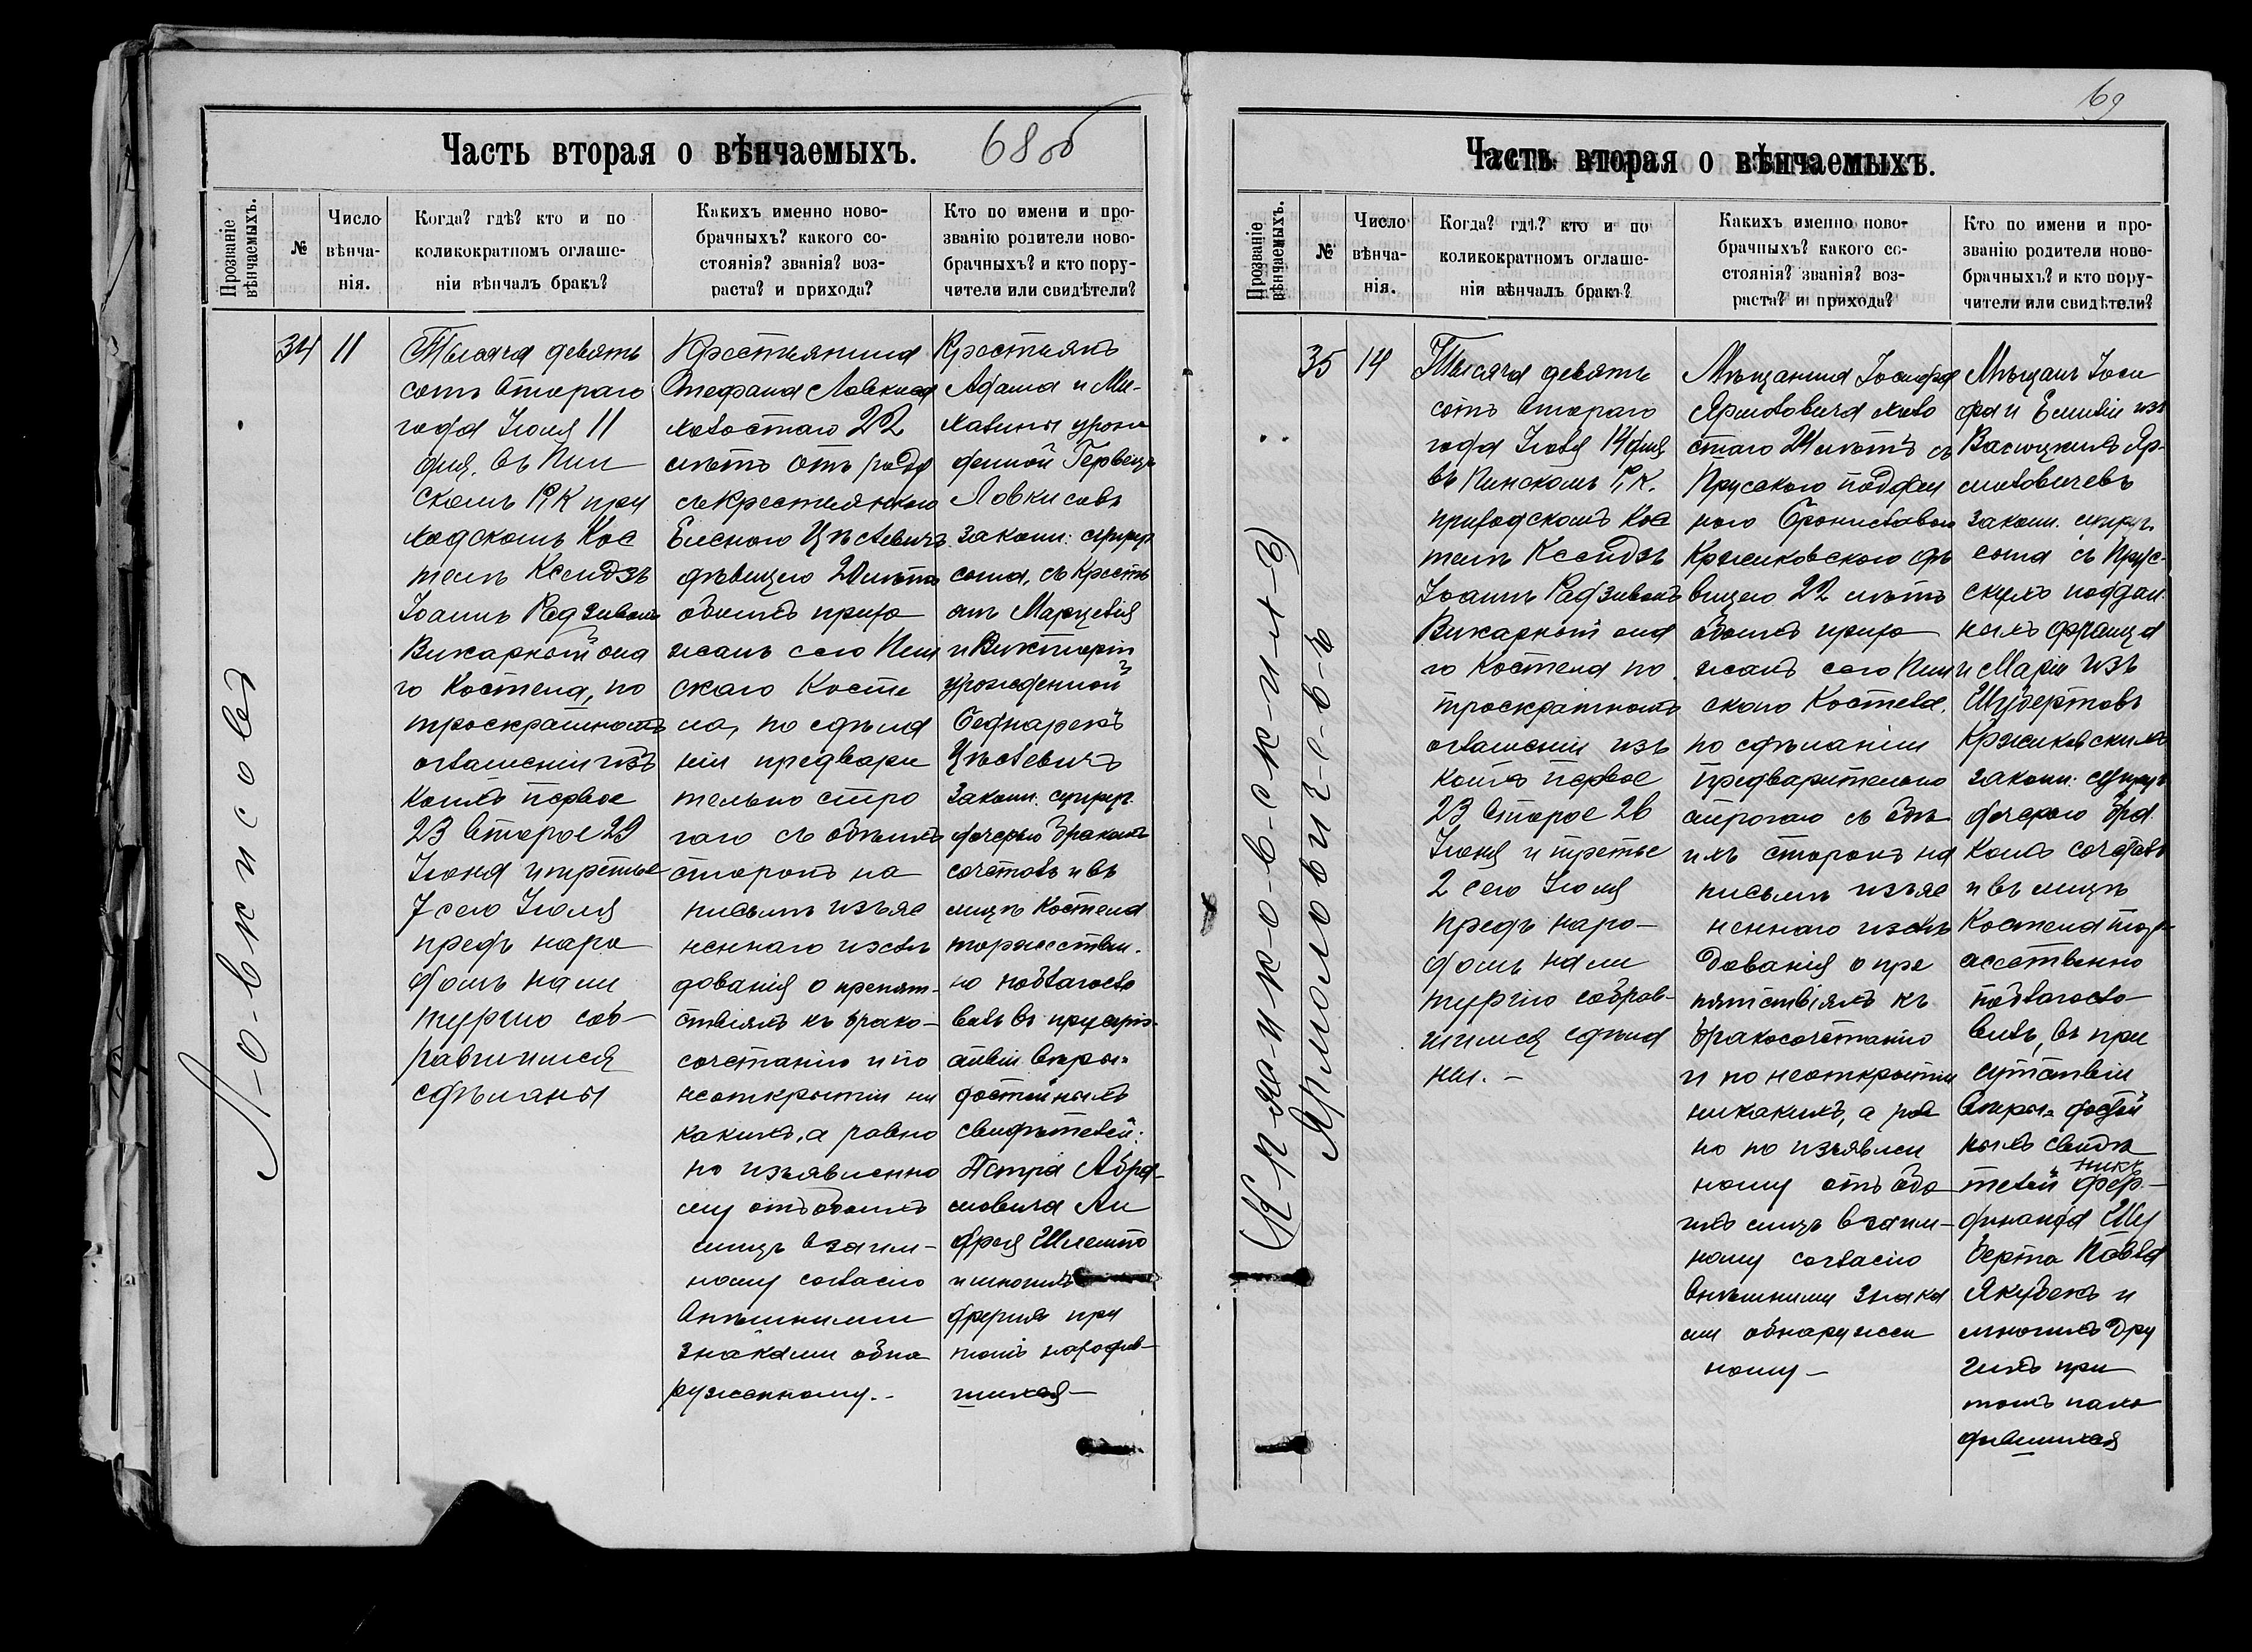 68 об
Часть вторая о вѣнчаемыхъ.
Прозваніе вѣнчаемыхъ.
№
Число вѣнча-
нія.
Когда? гдѣ? кто и по
коликократномъ оглаше-
ніи вѣнчалъ бракъ?
Какихъ именно ново-
брачныхъ? какого со-
стоянія? званія? воз-
раста? и прихода?
Кто по имени и про-
званію родители ново-
брачныхъ? и кто пору-
чители или свидѣтели?
Л-о-в-к-и-с-о-в-ъ
34
11
Тысяча девять
сотъ втораго
года Іюля 11
дня, въ Пин
скомъ Р, К при
ходскомъ Кос
телѣ Ксендзъ
Іоаннъ
Викарный она
го Костела, по
троекратномъ
оглашеніи изъ
коихъ первое
23 второе 29
Іюня и третье
7 сего Іюля
предъ наро
домъ на ли
тургію соб-
равшимся
сдѣланы
Крестьянина
Стефана Ловкиса
холостаго 22
лѣтъ отъ роду
съ крестьянкою
Еленою Цѣслевичъ
дѣвицею 20 лѣтъ
обоихъ прихо
жанъ сего Пин
скаго Косте
ла, по сдѣла
ніи предвари
тельно стро
гаго съ обѣихъ
сторонъ на
письмѣ изъяс
неннаго изслѣ
дованія о препят-
ствіяхъ къ брако-
сочетанію и по
неоткрытіи ни
какихъ, а равно
по изъявленно
му отъ обоихъ
лицъ взаим-
ному согласію
внѣшними
знаками обна
руженному.-
Крестьянъ
Адама и Ми-
халины урож
денной
Ловкисовъ
законн: супруг
сына, съ Кресть
анъ Марцелія
и Викторіи
урожденной
Беднарекъ
Цѣслевичъ
законн. супруг.
дочерью бракомъ
сочеталъ и въ
лицѣ Костела
торжествен-
но поблагосло
вилъ въ присут-
ствіи вѣры-
достойныхъ
свидѣтелей:
Петра Абра-
мовича Ан
дрея
и многихъ
другихъ при
томъ находив-
шихся-
69
Часть вторая о вѣнчаемыхъ.
Прозваніе вѣнчаемыхъ.
№
Число вѣнча-
нія.
Когда? гдѣ? кто и по
коликократномъ оглаше-
ніи вѣнчалъ бракъ?
Какихъ именно ново-
брачныхъ? какого со-
стоянія? званія? воз-
раста? и прихода?
Кто по имени и про-
званію родители ново-
брачныхъ? и кто пору-
чители или свидѣтели?
Ярмоловичевъ
35
14
Тысяча девять
сотъ втораго
года Іюля 14 дня
въ Пинскомъ Р, К.
приходскомъ Кос
телѣ Ксендзъ
Іоаннъ
Викарный она
го Костела по
троекратномъ
оглашеніи изъ
коихъ первое
23 второе 26
Іюня и третье
2 сего Іюля
предъ наро-
домъ на ли
тургію собрав-
шимся сдѣла
ны.-
Мѣщанина Іосифа
Ярмоловича холо
стаго 24 лѣтъ съ
Прусскою поддан
ною Брониславою
дѣ
вицею 22 лѣтъ
обоихъ прихо
жанъ сего Пин
скаго Костела,
по сдѣланіи
предварительно
строгаго съ обѣ
ихъ сторонъ на
письмѣ изъяс
неннаго изслѣ
дованія о пре
пятствіяхъ къ
бракосочетанію
и по неоткрытіи
никакихъ, а рав
но по изъявлен
ному отъ обо
ихъ лицъ взаим-
ному согласію
внѣшними знака
ми обнаружен
ному-
Мѣщанъ Іоси
фа и Емиліи изъ
Яр-
моловичевъ
законн. супруг.
сына съ Прус-
скихъ поддан.
ныхъ Франца
и Маріи изъ
Шубертовъ
законн: супруг
дочерью бра
комъ сочеталъ
и въ лицѣ
Костела торж-
ественно
поблагосло-
вилъ, въ при
сутствіи
вѣры- достой
ныхъ свидѣ
телей Фер-
динанда Шу
берта Павла
Якубекъ и
многихъ дру
гихъ при
томъ нахо
дившихся